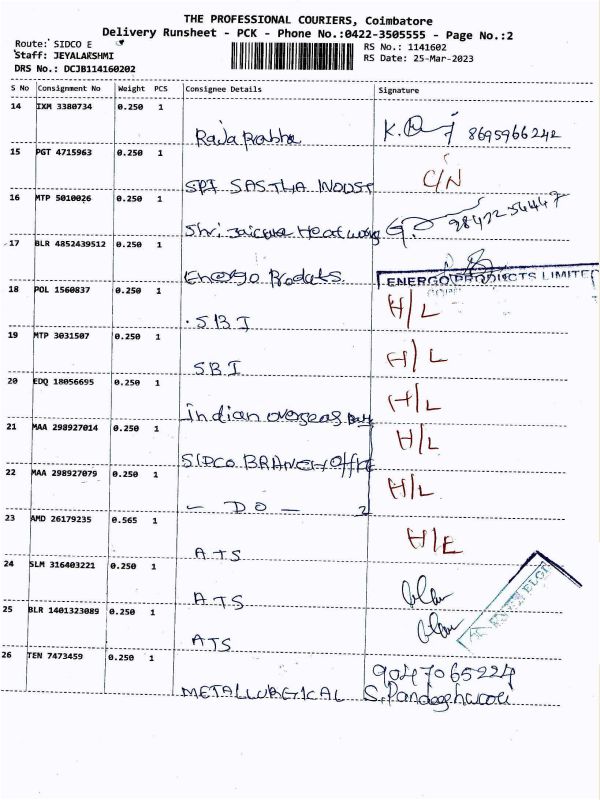 THE PROFESSIONAL COURIERS, Coimbatore
Delivery Runsheet - PCK - Phone No.:0422-3505555 - Page No.:2
Route: SIDCO E
Staff: JEYALAKSHMI
DRS No.: DCJB114160202
RS No.: 1141602
RS Date: 25-Mar-2023
S No Consignment No Weight PCS Consignee Details Signature
14 IXM 3380734 0.250 1
Raja Prabha K. 8695966242
15 PGT 4715963 0.250 1
SRI SASTHA INDUST C/N
16 MTP 5010026 0.250 1
Shri Heat 98422 54447
17 BLR 4852439512 0.250 1
Energo Prodats ENERGO PRODUCTS LIMITED
18 POL 1560837 0.250 1
SBI H/L
19 MTP 3031507 0.250 1
SBI H/L
20 EDQ 18056695 0.250 1
Indian overseas H/L
21 MAA 298927014 0.250 1
SIDCO BRANCH Office H/L
22 MAA 298927079 0.250 1
- DO - H/L
23 AMD 26179235 0.565 1
ATS H/E
24 SLM 316403221 0.250 1
ATS
25 BLR 1401323089 0.250 1
ATS
26 TEN 7473459 0.250 1
9047065224
METALLURGICAL